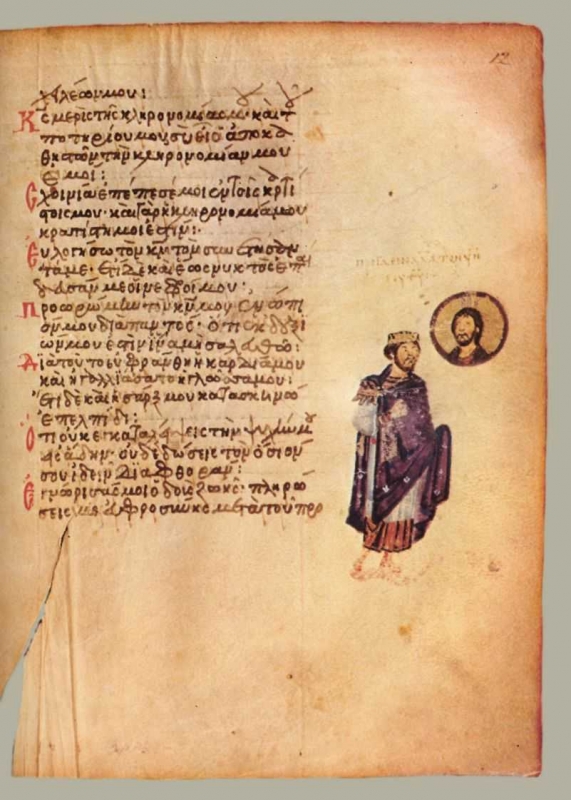 12
χειλέων μου:
Κς μερὶς τῆς κληρονομίας μου καὶ τοῦ
ποτηρίου μου σὺ εἶ ὁ ἀποκα
θιστῶν τὴν κληρονομίαν μου
ἐμοί:
Σχοινία ἐπέπεσέ μοι ἐν τοῖς κρατί
στοις μου· καὶ γὰρ ἡ κληρονομία μου
κρατίστη μοι ἐστίν:
Εὐλογήσω τὸν κν τὸν συνετίσαν
τά με· ἔτι δὲ καὶ ἕως νυκτὸς ἐπαί
δευσάν με οἱ νεφροί μου:
Προορώμην τὸν κν μου ἐνώπι
όν μου διὰ παντός· ὅτι ἐκ δεξι
ῶν μου ἐστὶν ἵνα μὴ σαλευθῶ:
Διὰ τοῦτο ηὐφράνθη ἡ καρδία μου
καὶ ἠγαλλιάσατο ἡ γλῶσσά μου:
Ἔτι δὲ καὶ ἡ σάρξ μου κατασκηνώσει
ἐπ' ἐλπίδι:
Ὅτι οὐκ ἐγκαταλείψεις τὴν ψυχήν μου
εἰς ἅδην· οὐδὲ δώσεις τὸν ὅσιόν
σου ἰδεῖν διαφθοράν:
Ἐγνώρισάς μοι ὁδοὺς ζωῆς· πληρώ
σεις με εὐφροσύνης μετὰ τοῦ προ